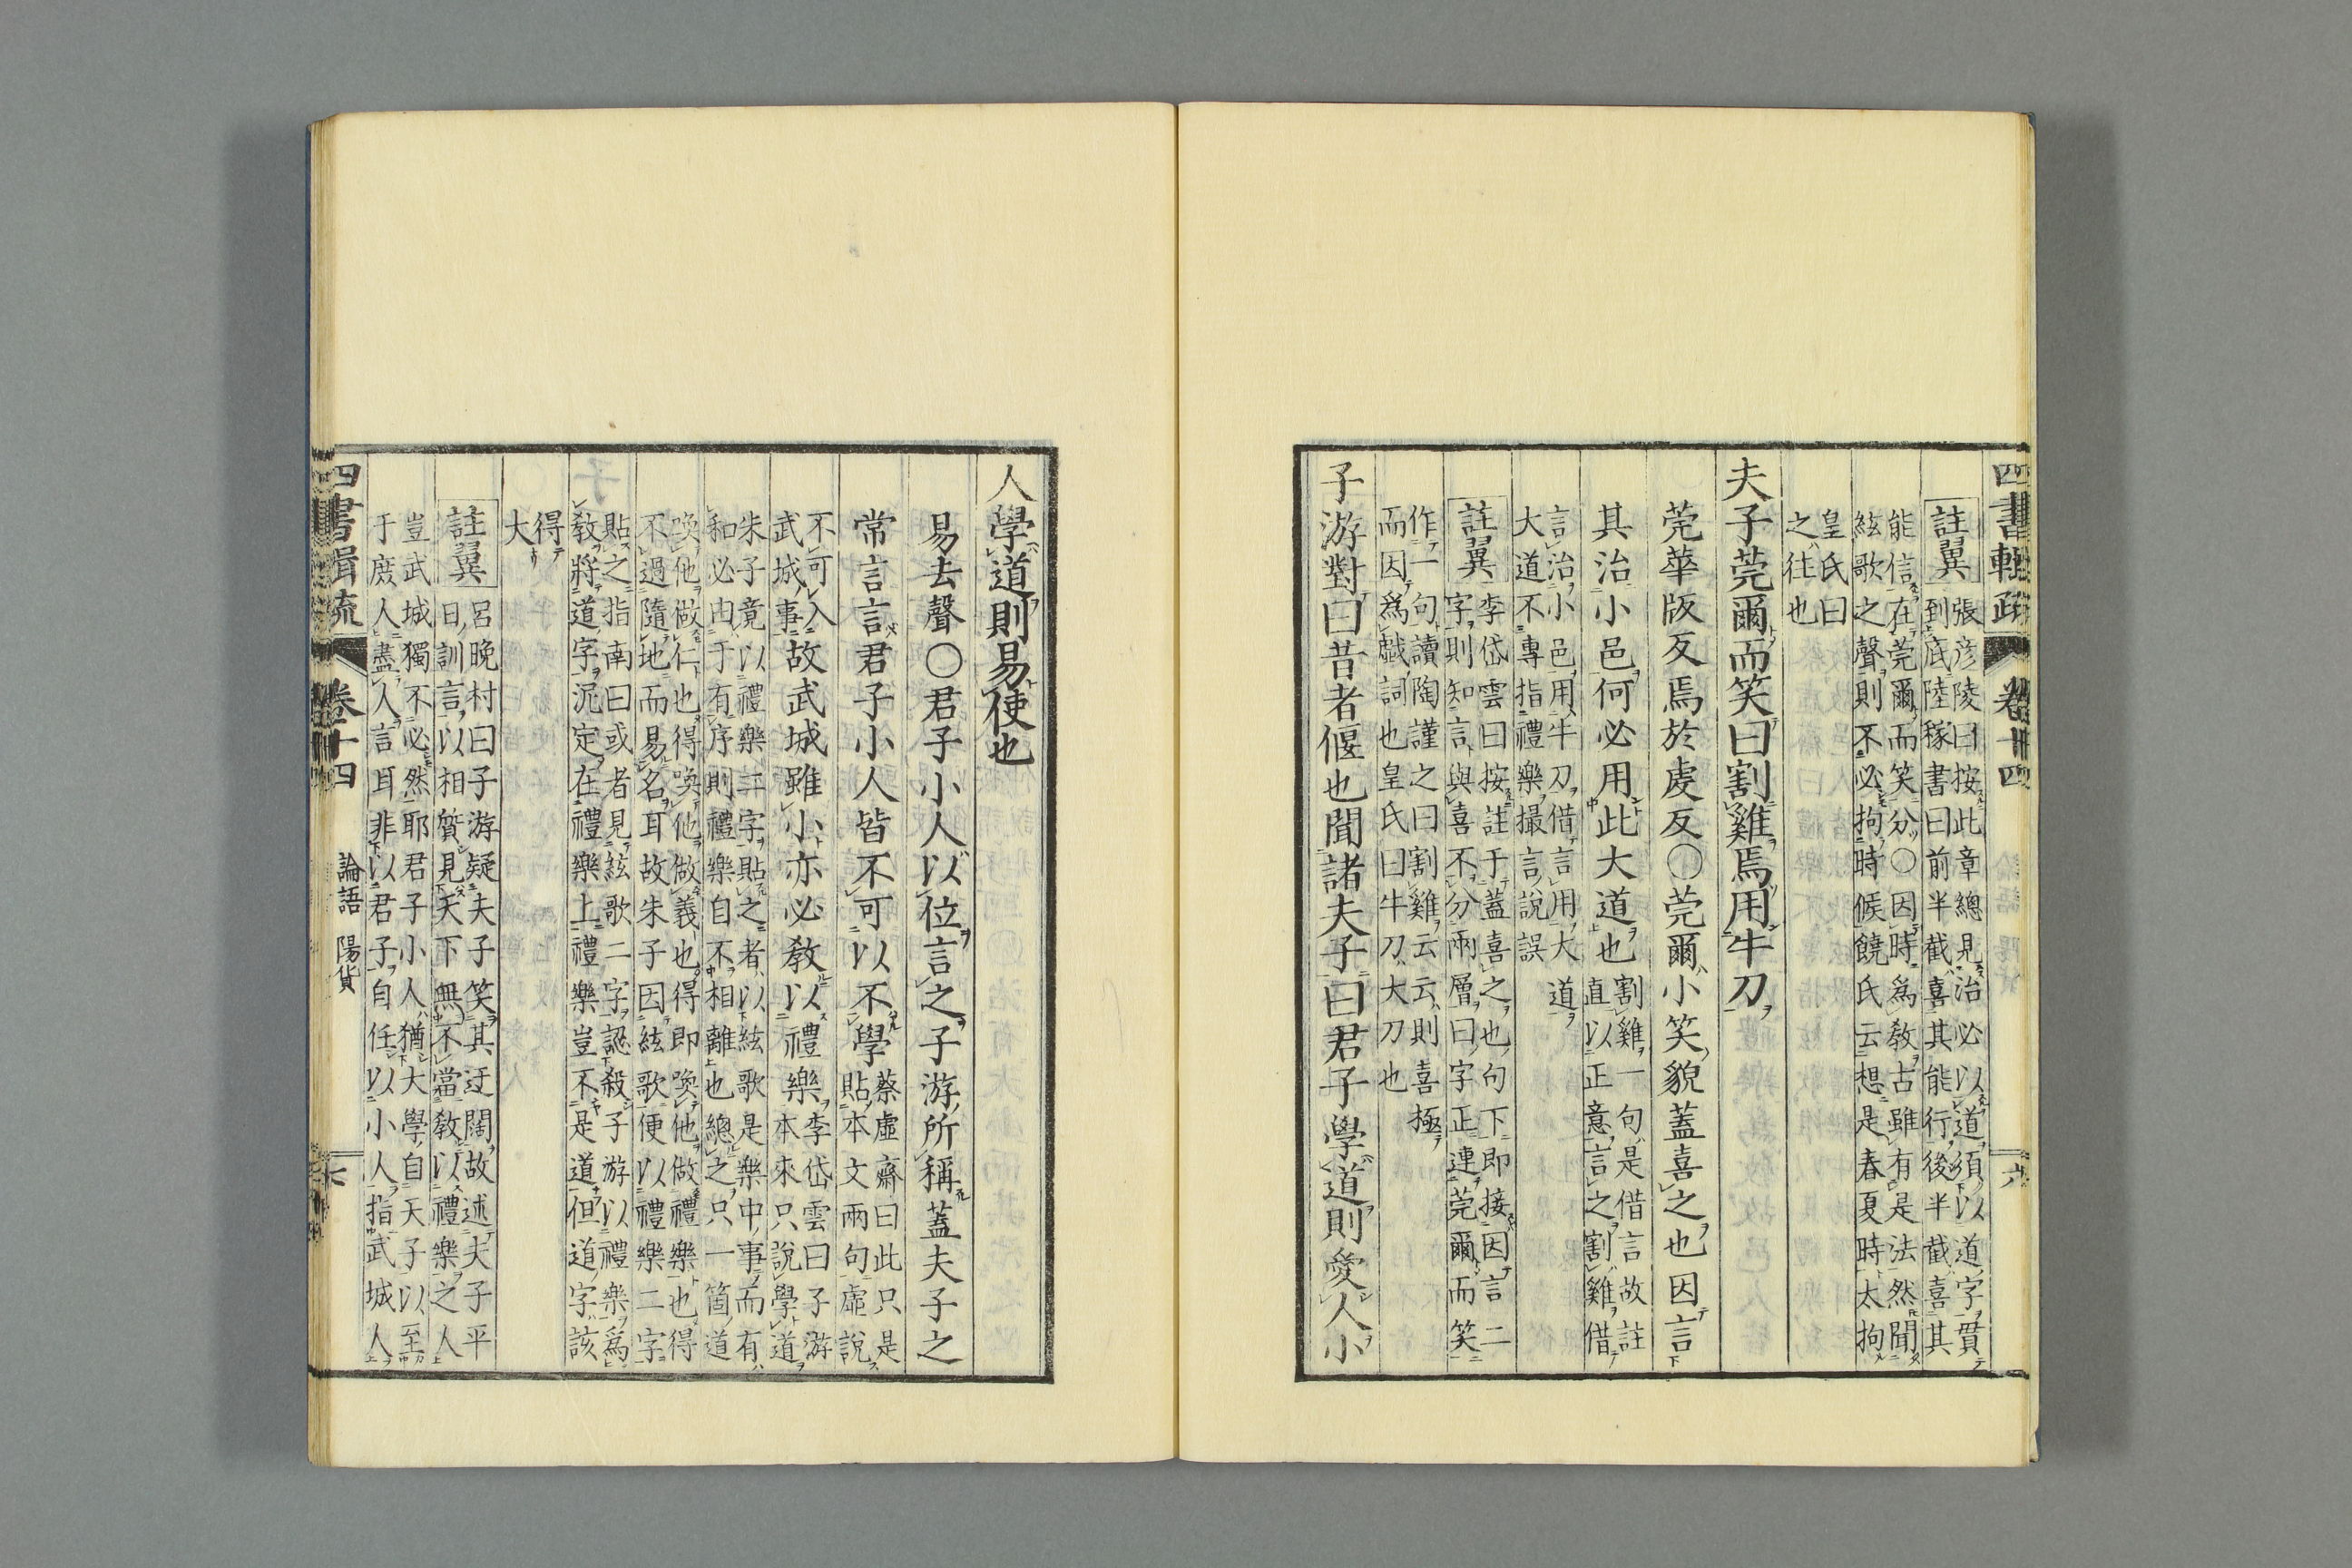 四書輯疏 卷十四 六
註翼 張彦陵曰按此章總見治必以道須以道字貫
到底陸稼書曰前半截喜其能行後半截喜其
能信在莞爾而笑分○因時爲教古雖有是法然聞
絃歌之聲則不必拘時候饒氏云想是春夏時太拘
皇氏曰
之往也
夫子莞爾而笑曰割雞焉用牛刀
莞華版反焉於虔反○莞爾小笑貌蓋喜之也因言
其治小邑何必用此大道也 割雞一句是借言故註
直以正意言之割雞借
言治小邑用牛刀借言用大道
大道不專指禮樂撮言說誤
註翼 李岱雲曰按註于蓋喜之也句下即接因言二
字則知言與喜不分兩層曰字正連莞爾而笑
作一句讀陶謹之曰割雞云云則喜極
而因爲戲詞也皇氏曰牛刀大刀也
子游對曰昔者偃也聞諸夫子曰君子學道則愛人小
人學道則易使也
易去聲○君子小人以位言之子游所稱蓋夫子之
常言言君子小人皆不可以不學 蔡虛齋曰此只是
貼本文兩句虛說
不可入
武城事 故武城雖小亦必教以禮樂 李岱雲曰子游
本來只說學道
朱子竟以禮樂二字貼之者以絃歌是樂中事而有
和必由于有序則禮樂自不相離也總之只一箇道
喚他做仁也得喚他做義也得即喚他做禮樂也得
不過隨地而易名耳故朱子因絃歌便以禮樂二字
貼之指南曰或者見絃歌二字認殺子游以禮樂爲
教將道字泥定在禮樂上禮樂豈不是道但道字該
得
大
註翼 呂晚村曰子游疑夫子笑其迂闊故述夫子平
日訓言以相質見天下無不當教以禮樂之人
豈武城獨不必然耶君子小人猶大學自天子以至
于庶人盡人言耳非以君子自任以小人指武城人
四書輯疏 卷十四 論語 陽貨 七